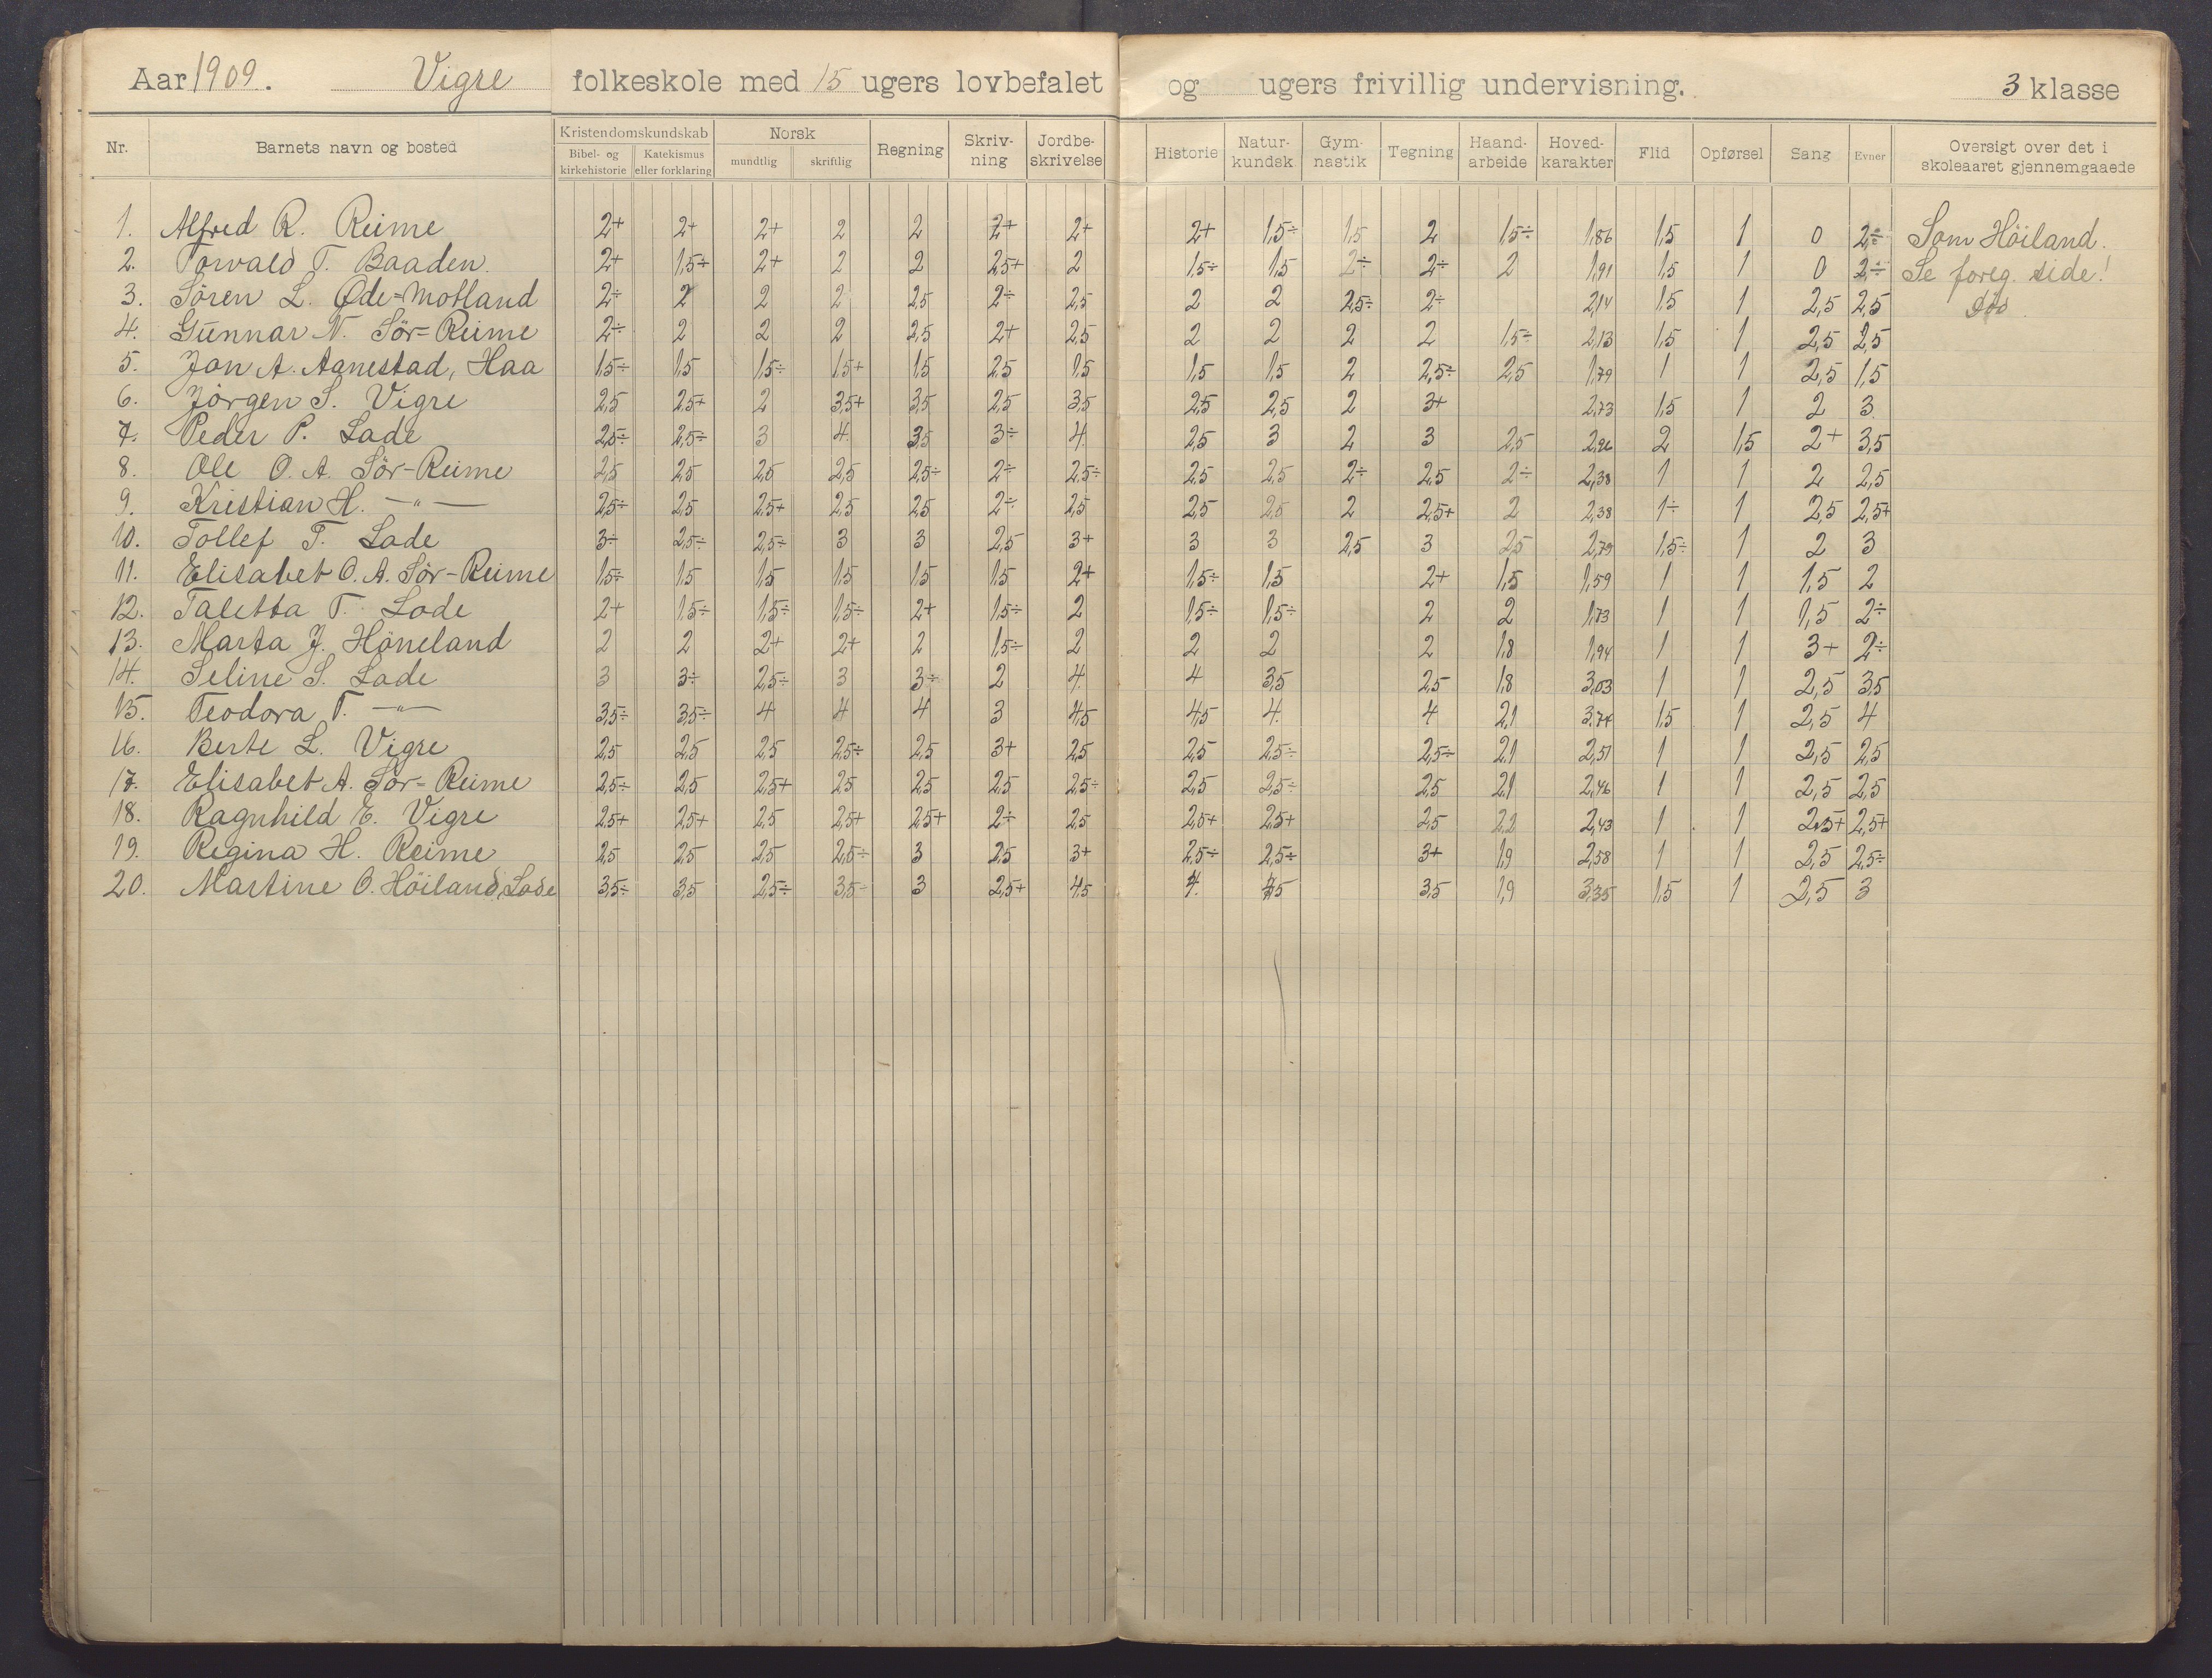 Aar 1909. Vigre folkeskole med 15 ugers lovbefalet og ugers frivillig undervisning. 3 klasse
Nr. Barnets navn og bosted Kristendomskundskab Bibel- og kirkehistorie Katekismus eller forklaring Norsk mundtlig skriftlig Regning Skriv-ning Jordbe-skrivelse Historie Natur-kundsk. Gym-nastik Tegning Haand-arbeide Hoved-karakter Flid Opførsel Sang Evner Oversigt over det i skoleaaret gjennemgaaede
1. Alfred R. Reime 2+ 2+ 2+ 2 2 2+ 2+ 2+ 1,5÷ 1,5 2 1,5÷ 1,86 1,5 1 0 2÷ Som Höiland.
2. Torvald T. Baaden. 2+ 1,5+ 2+ 2 2 2,5+ 2 1,5÷ 1,5 2÷ 2÷ 2 1,91 1,5 1 0 2÷ Se foreg. side!
3. Sören L. Øde=Motland 2÷ 2 2 2 2,5 2÷ 2,5 2 2 2,5÷ 2÷ 2,14 1,5 1 2,5 2,5
4. Gunnar N. Sör=Reime 2÷ 2 2 2 2,5 2+ 2,5 2 2 2 2 1,5÷ 2,13 1,5 1 2,5 2,5
5. Jon A. Aanestad, Haa 1,5÷ 1,5 1,5÷ 1,5+ 1,5 2,5 1,5 1,5 1,5 2 2,5÷ 2,5 1,79 1 1 2,5 1,5
6. Jörgen S. Vigre 2,5 2,5+ 2 3,5+ 3,5 2,5 3,5 2,5 2,5 2 3+ 2,73 1,5 1 2 3
7. Peder P. Lade 2,5÷ 2,5÷ 3 4 3,5 3÷ 4 2,5 3 2 3 2,5 2,96 2 1,5 2+ 3,5
8. Ole O. A. Sör-Reime 2,5 2,5 2,5 2,5 2,5÷ 2÷ 2,5÷ 2,5 2,5 2÷ 2,5 2÷ 2,38 1 1 2 2,5
9. Kristian H. —"— 2,5÷ 2,5 2,5+ 2,5 2,5 2÷ 2,5 2,5 2,5 2 2,5+ 2 2,38 1÷ 1 2,5 2,5+
10. Tollef T. Lode 3÷ 2,5÷ 2,5÷ 3 3 2,5 3+ 3 3 2,5 3 2,5 2,79 1,5÷ 1 2 3
11. Elisabet O. A. Sör-Reime 1,5÷ 1,5 1,5 1,5 1,5 1,5 2+ 1,5÷ 1,5 2+ 1,5 1,59 1 1 1,5 2
12. Taletta T. Lode 2+ 1,5÷ 1,5÷ 1,5÷ 2+ 1,5÷ 2 1,5÷ 1,5÷ 2 2 1,73 1 1 1,5 2÷
13. Marta J. Höneland 2 2 2+ 2+ 2 1,5÷ 2 2 2 2 1,8 1,94 1 1 3+ 2÷
14. Seline S. Lade 3 3÷ 2,5÷ 3 3÷ 2 4 4 3,5 2,5 1,8 3,03 1 1 2,5 3,5
15. Teodora T. —"— 3,5÷ 3,5÷ 4 4 4 3 4,5 4,5 4 4 2,1 3,74 1,5 1 2,5 4
16. Berte L. Vigre 2,5 2,5 2,5 2,5÷ 2,5 3+ 2,5 2,5 2,5÷ 2,5÷ 2,1 2,51 1 1 2,5 2,5
17. Elisabet A. Sör=Reime 2,5÷ 2,5 2,5+ 2,5 2,5 2,5 2,5÷ 2,5 2,5÷ 2,5 2,1 2,46 1 1 2,5 2,5
18. Ragnhild E. Vigre 2,5+ 2,5+ 2,5 2,5+ 2,5+ 2÷ 2,5 2,5+ 2,5+ 2,5 2,2 2,43 1 1 2,5+ 2,5+
19. Regina H. Reime 2,5 2,5 2,5 2,5÷ 3 2,5 3+ 2,5÷ 2,5÷ 3+ 1,9 2,58 1 1 2,5 2,5÷
20. Martine O. Höiland, Lode 3,5÷ 3,5 2,5÷ 3,5÷ 3 2,5+ 4,5 4 3,5 1,9 3,35 1,5 1 2,5 3